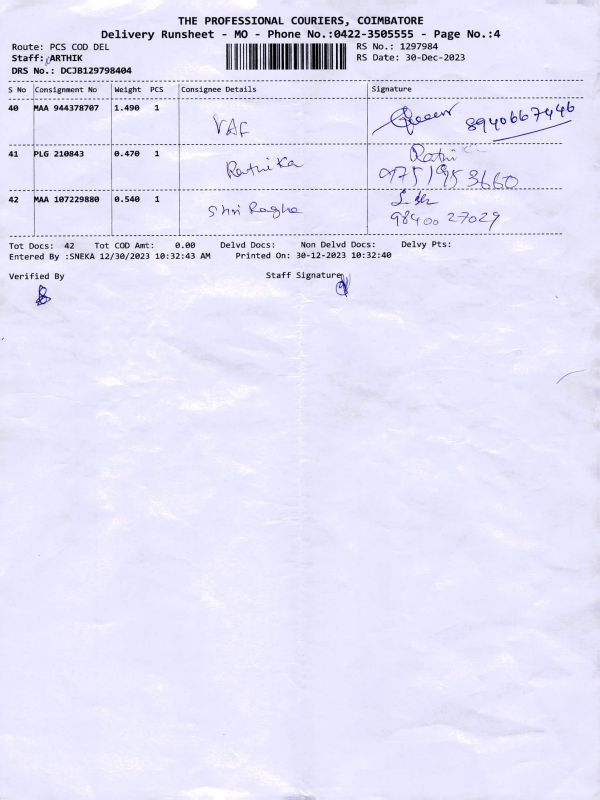 THE PROFESSIONAL COURIERS, COIMBATORE
Delivery Runsheet - MO - Phone No.:0422-3505555 - Page No.:4
Route: PCS COD DEL
RS No.: 1297984
Staff: ARTHIK
RS Date: 30-Dec-2023
DRS No.: DCJB129798404
S No Consignment No Weight PCS Consignee Details Signature
40 MAA 944378707 1.490 1 VAF 8940667446
41 PLG 210843 0.470 1 Rathika Rathika
9751953660
42 MAA 107229880 0.540 1 Shri Ragha
98400 27029
Tot Docs: 42 Tot COD Amt: 0.00 Delvd Docs: Non Delvd Docs: Delvy Pts:
Entered By :SNEKA 12/30/2023 10:32:43 AM Printed On: 30-12-2023 10:32:40
Verified By Staff Signature